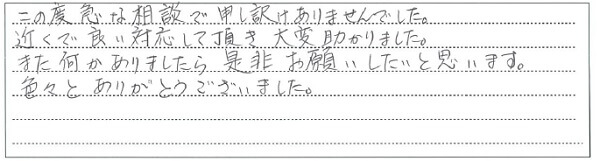 この度急な相談で申し訳けありませんでした。
近くで良い対応して頂き大変助かりました。
また何かありましたら是非お願いしたいと思います。
色々とありがとうございました。